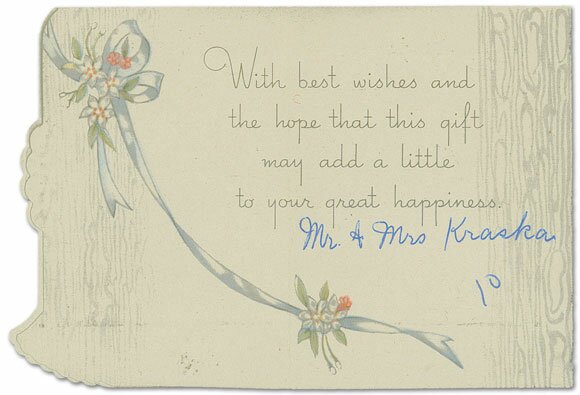 With best wishes and
the hope that this gift
may add a little
to your great happiness.
Mr. & Mrs Kraska
10